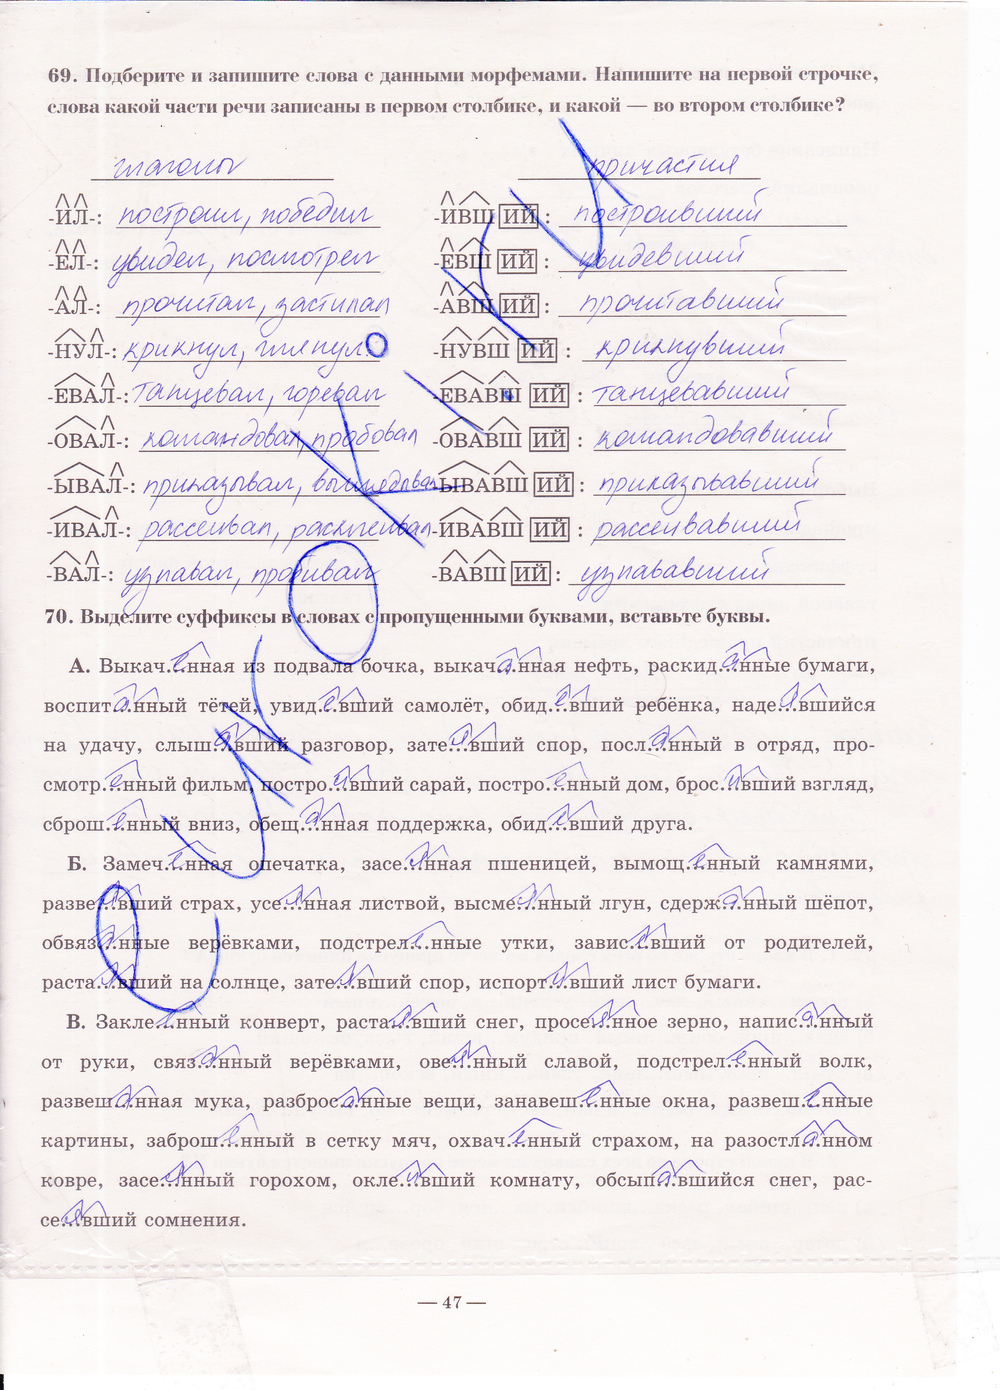 69. Подберите и запишите слова с данными морфемами. Напишите на первой строчке,
слова какой части речи записаны в первом столбике, и какой — во втором столбике?
глаголы причастия
-ИЛ-: построил, победил -ИВШ ИЙ : построивший
-ЕЛ-: увидел, посмотрел -ЕВШ ИЙ : увидевший
-АЛ-: прочитал, застилал -АВШ ИЙ : прочитавший
-НУЛ-: крикнул, глянул -НУВШ ИЙ : крикнувший
-ЕВАЛ-: танцевал, горевал -ЕВАВШ ИЙ : танцевавший
-ОВАЛ-: командовал, пробовал -ОВАВШ ИЙ : командовавший
-ЫВАЛ-: приказывал, выглядывал -ЫВАВШ ИЙ : приказывавший
-ИВАЛ-: рассеивал, расклеивал -ИВАВШ ИЙ : рассеивавший
-ВАЛ-: узнавал, пробивал -ВАВШ ИЙ : узнававший
70. Выделите суффиксы в словах с пропущенными буквами, вставьте буквы.
А. Выкач.енная из подвала бочка, выкач.анная нефть, раскид.анные бумаги,
воспит.анный тётей, увид.евший самолёт, обид.евший ребёнка, наде.явшийся
на удачу, слыш.авший разговор, зате.явший спор, посл.анный в отряд, про-
смотр.енный фильм, постро.ивший сарай, постро.енный дом, брос.ивший взгляд,
сброш.енный вниз, обещ.анная поддержка, обид.евший друга.
Б. Замеч.енная опечатка, засе.янная пшеницей, вымощ.енный камнями,
разве.явший страх, усе.янная листвой, высме.янный лгун, сдерж.анный шёпот,
обвяз.анные верёвками, подстрел.енные утки, завис.евший от родителей,
раста.явший на солнце, зате.явший спор, испорт.ивший лист бумаги.
В. Закле.енный конверт, раста.явший снег, просе.янное зерно, напис.анный
от руки, связ.анный верёвками, ове.янный славой, подстрел.енный волк,
развеш.анная мука, разброс.анные вещи, занавеш.енные окна, развеш.енные
картины, заброш.енный в сетку мяч, охвач.енный страхом, на разостл.анном
ковре, засе.янный горохом, окле.ивший комнату, обсып.авшийся снег, рас-
се.явший сомнения.
— 47 —